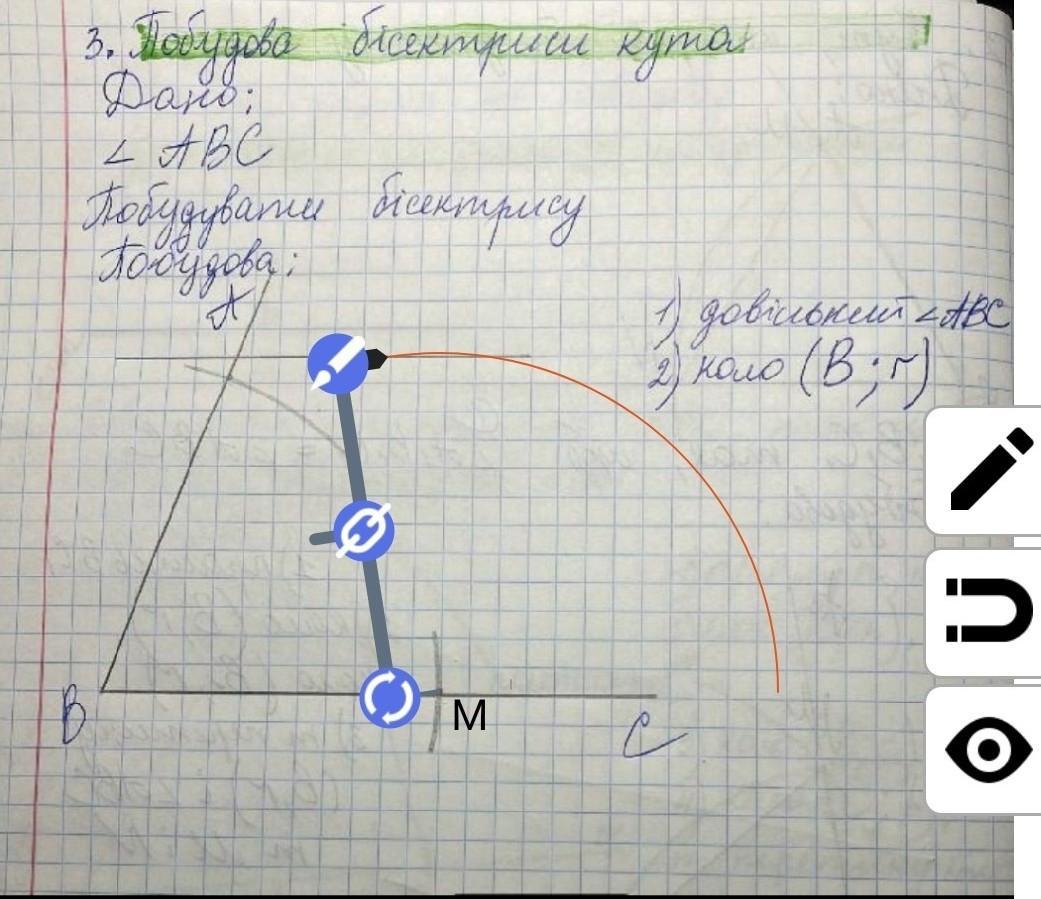 3. Побудова бісектриси кута
Дано:
∠ ABC
Побудувати бісектрису
Побудова:
A
1) довільний ∠ABC
2) коло (B; r)
B
M
C